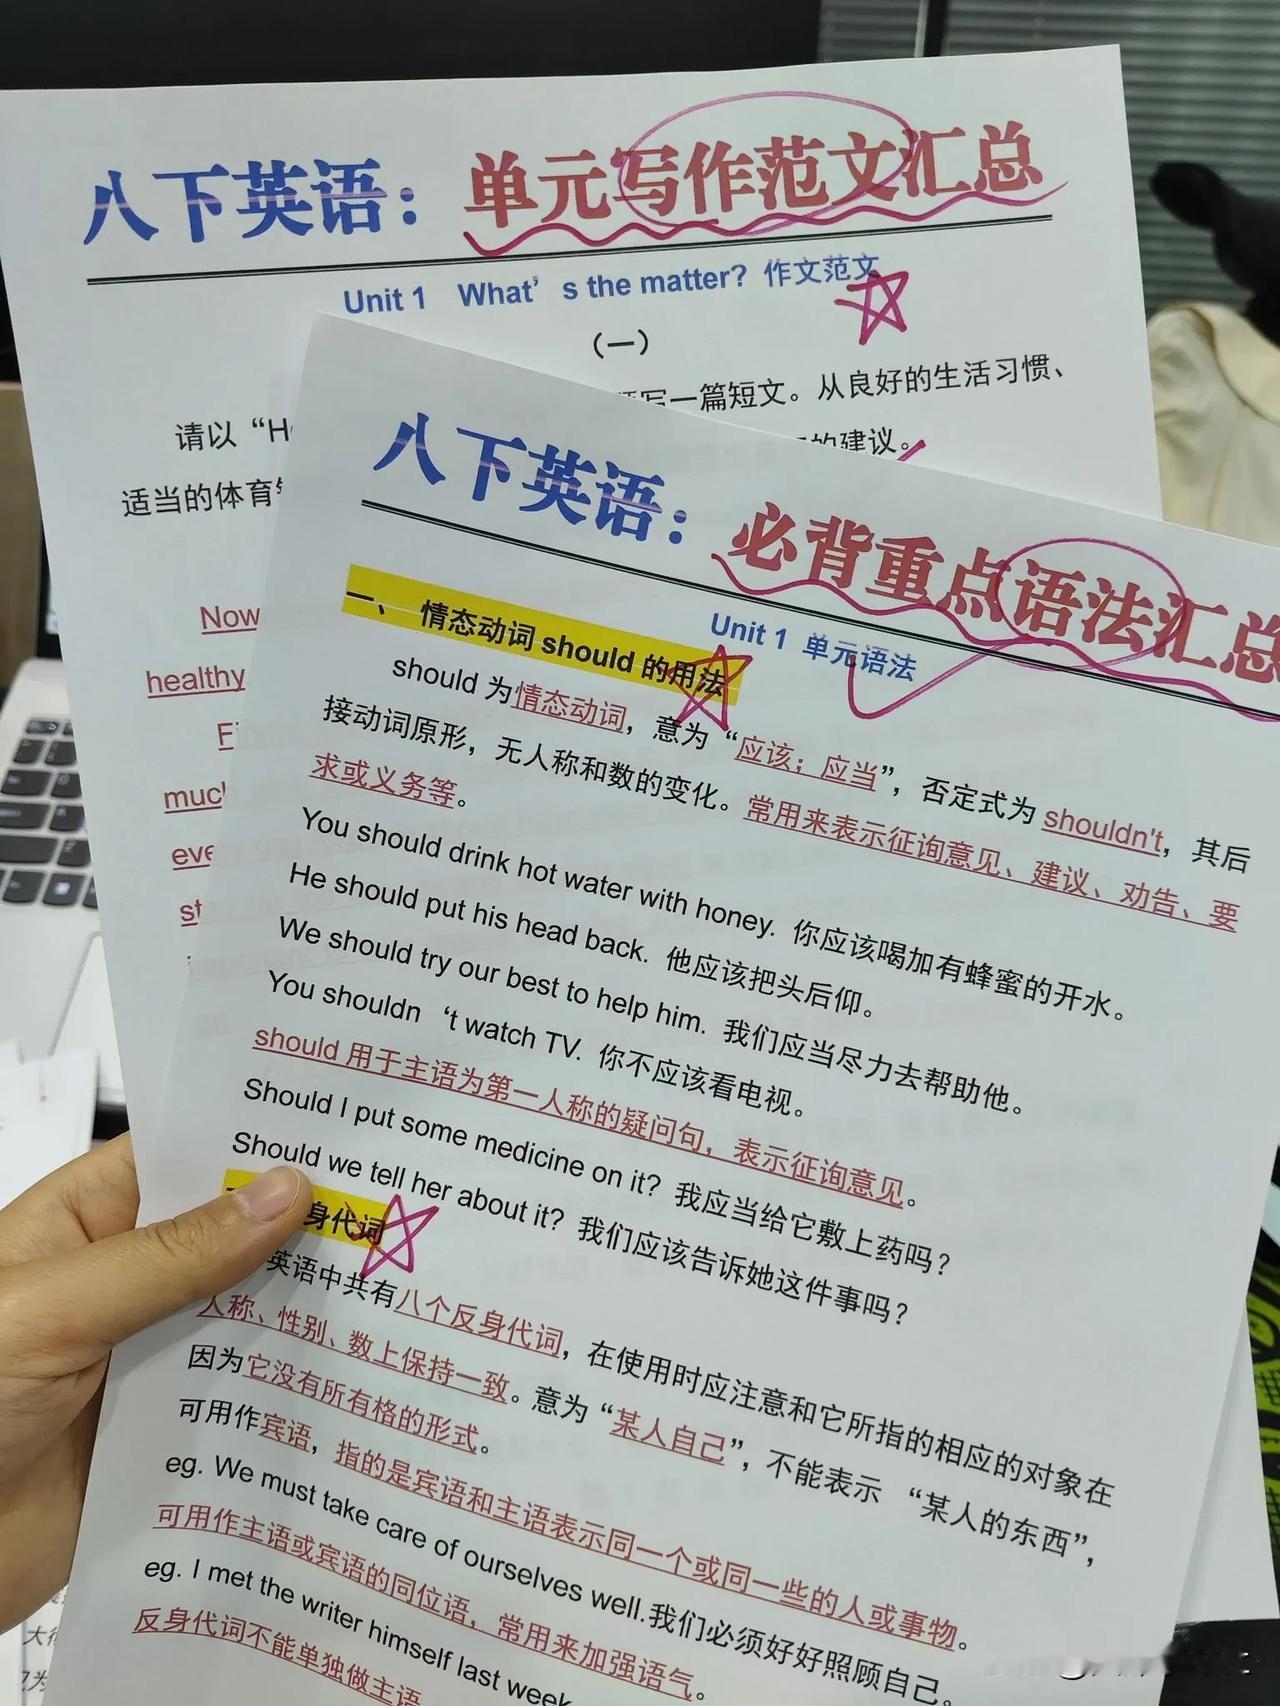 八下英语：单元写作范文汇总
Unit 1 What's the matter? 作文范文
（一）
请以“H
写一篇短文。从良好的生活习惯、
适当的体育
的建议。
Now
healthy
F
much
eve
st
八下英语：必背重点语法汇总
Unit 1 单元语法
一、 情态动词 should 的用法
should 为情态动词，意为“应该；应当”，否定式为 shouldn't，其后
接动词原形，无人称和数的变化。常用来表示征询意见、建议、劝告、要
求或义务等。
You should drink hot water with honey. 你应该喝加有蜂蜜的开水。
He should put his head back. 他应该把头后仰。
We should try our best to help him. 我们应当尽力去帮助他。
You shouldn ‘t watch TV. 你不应该看电视。
should 用于主语为第一人称的疑问句，表示征询意见。
Should I put some medicine on it? 我应当给它敷上药吗？
Should we tell her about it? 我们应该告诉她这件事吗？
身代词
英语中共有八个反身代词，在使用时应注意和它所指的相应的对象在
人称、性别、数上保持一致。意为“某人自己”，不能表示 “某人的东西”，
因为它没有所有格的形式。
可用作宾语，指的是宾语和主语表示同一个或同一些的人或事物。
eg. We must take care of ourselves well.我们必须好好照顾自己。
可用作主语或宾语的同位语，常用来加强语气。
eg. I met the writer himself last week.
反身代词不能单独做主语